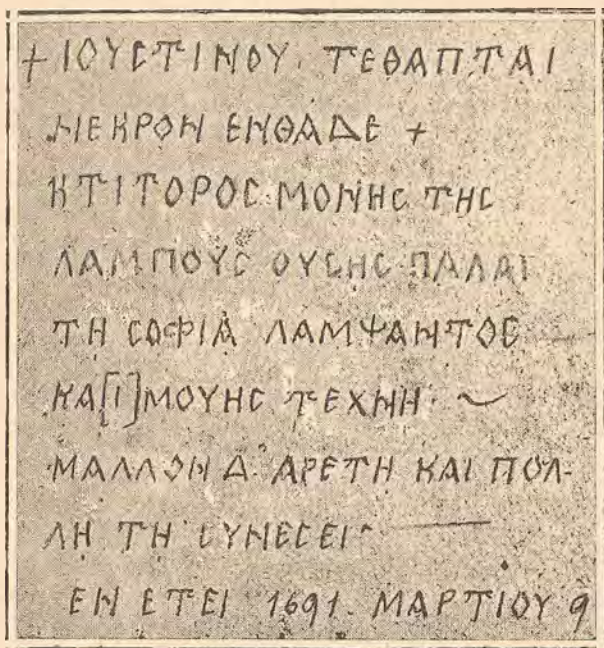 + ΙΟΥCΤΙΝΟΥ. ΤΕΘΑΠΤΑΙ
ΝΕΚΡΟΝ ΕΝΘΑΔΕ +
ΚΤΙΤΟΡΟC ΜΟΝΗC ΤΗC
ΛΑΜΠΟΥC ΟΥCΗC ΠΑΛΑΙ
ΤΗ CΟΦΙΑ ΛΑΜΨΑΝΤΟC
ΚΑ[Ι]ΜΟΥΗC ΤΕΧΝΗ ~
ΜΑΛΛΟΝ Δ' ΑΡΕΤΗ ΚΑΙ ΠΟΛ-
ΛΗ ΤΗ CΥΝΕCΕΙ
ΕΝ ΕΤΕΙ 1691. ΜΑΡΤΙΟΥ 9